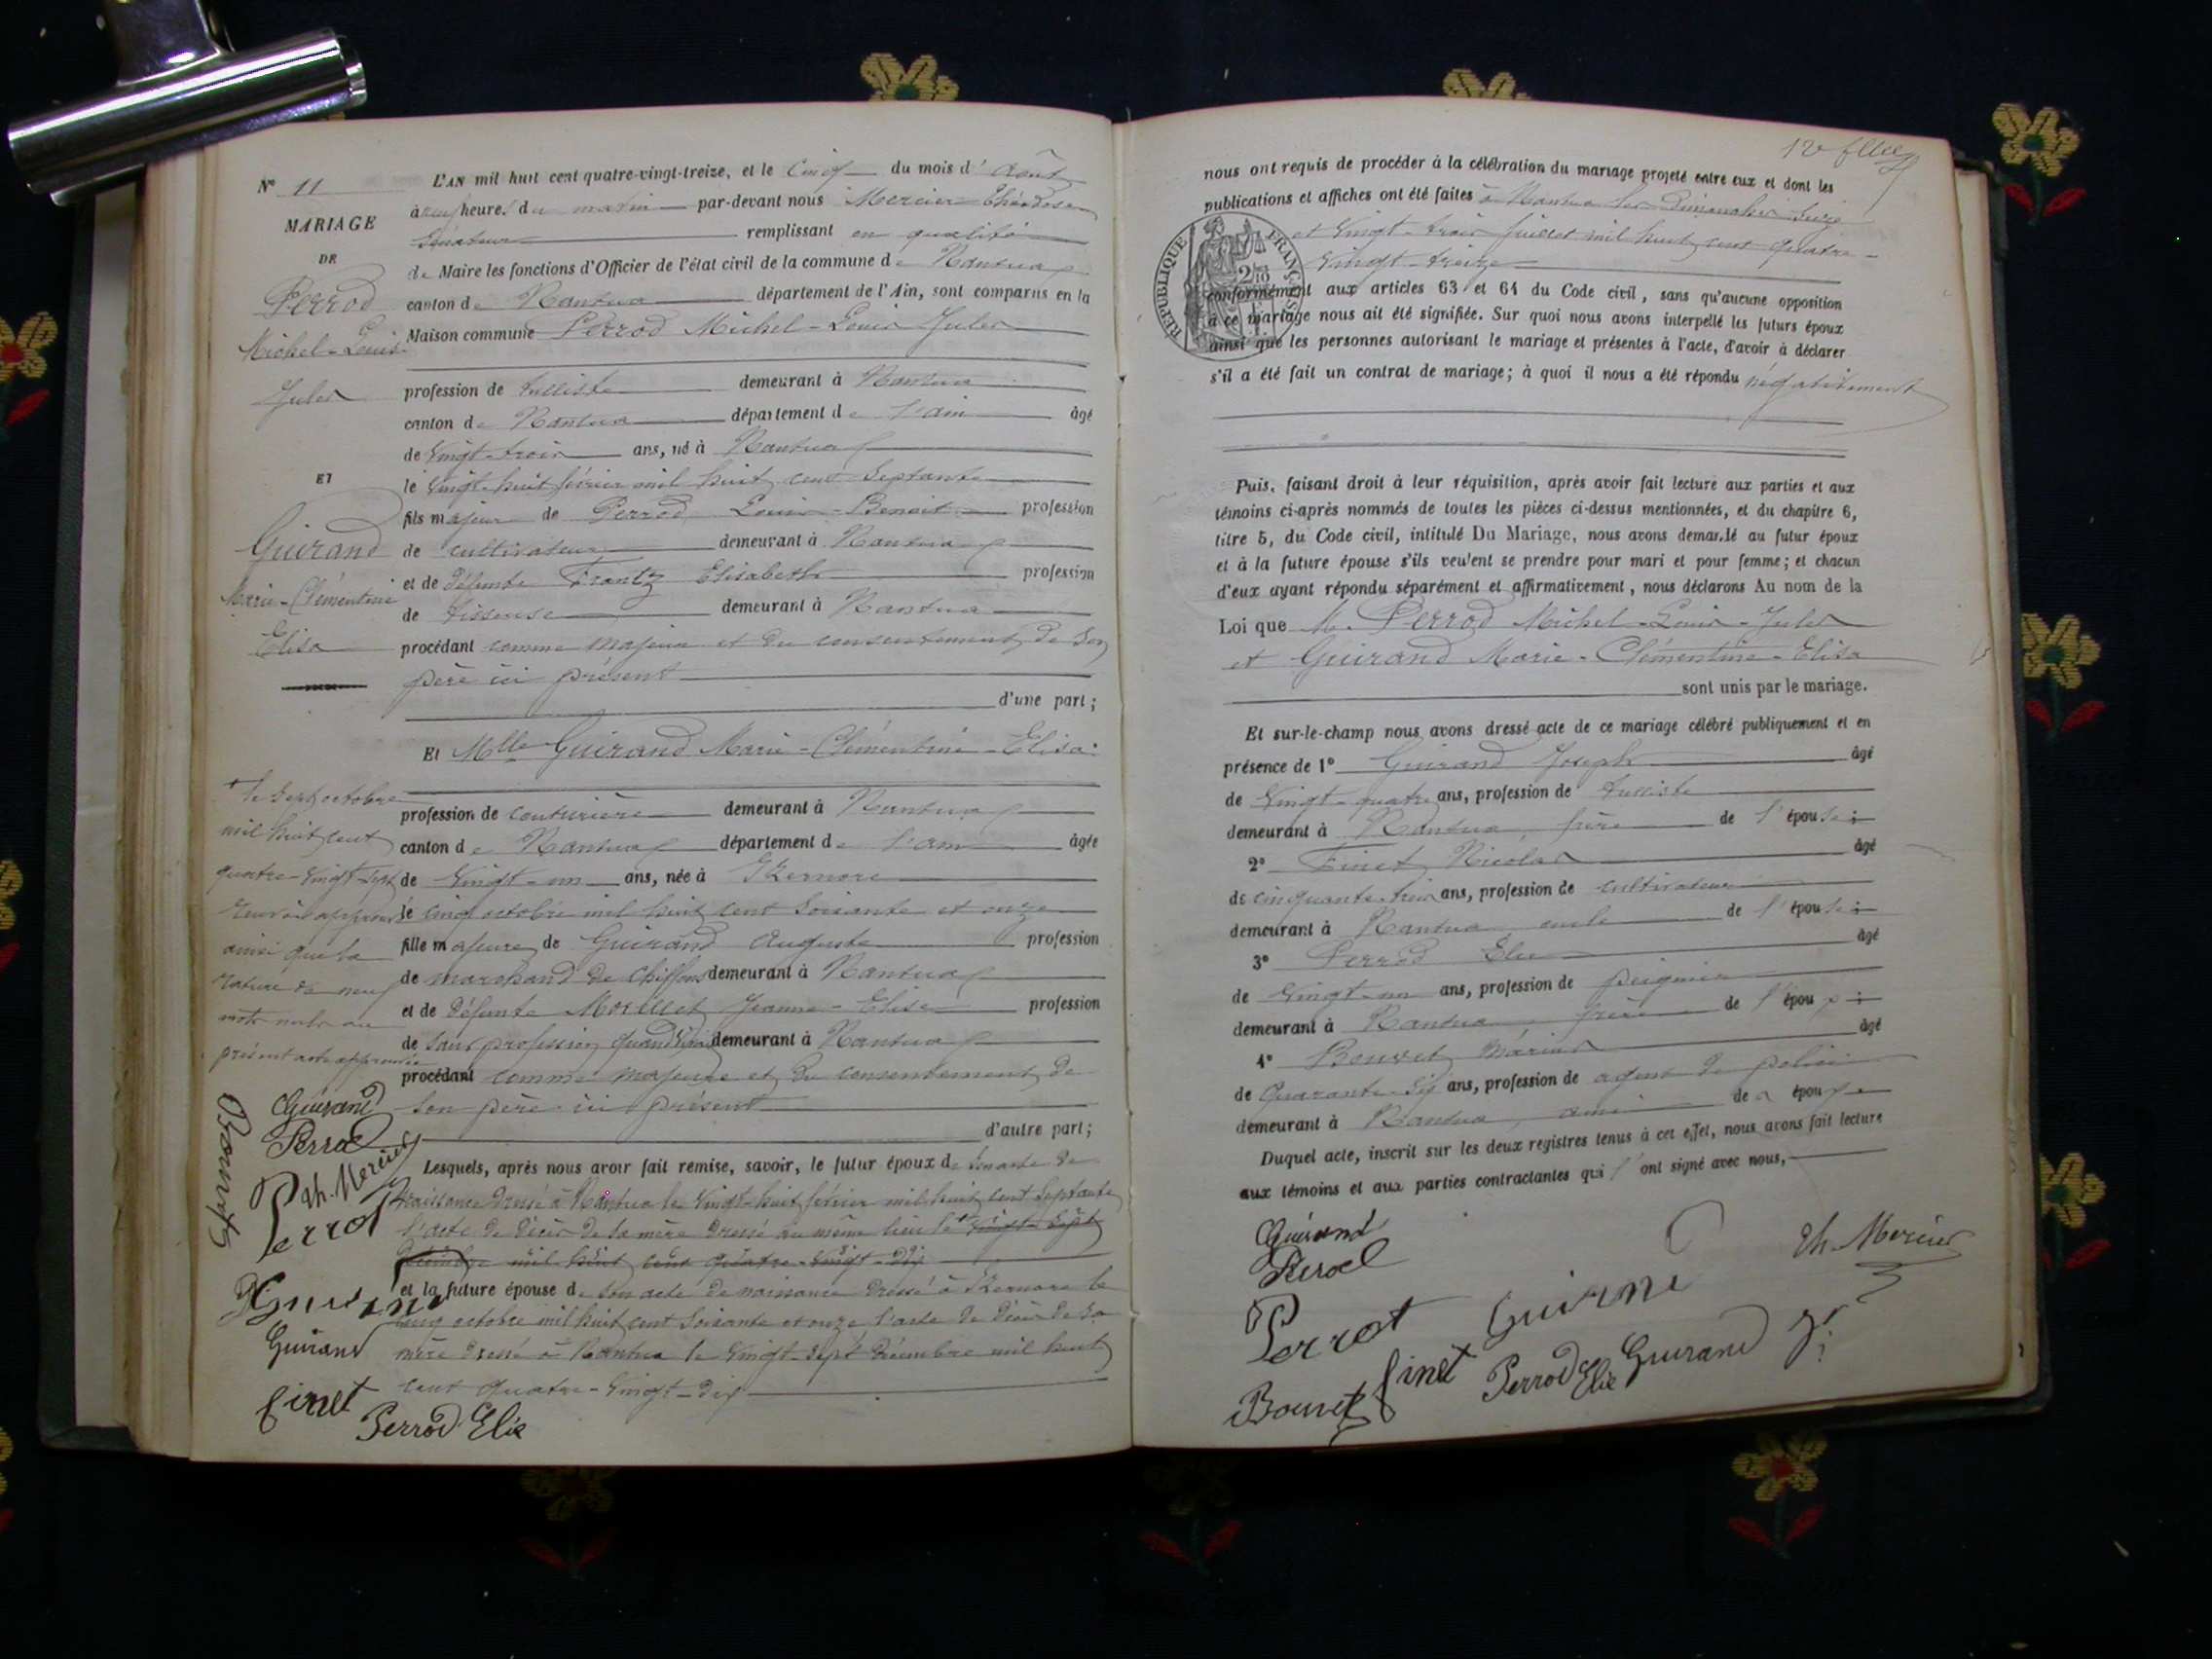 N° 11
MARIAGE
DE
Perrod
Michel-Louis
Jules
ET
Guirand
Marie-Clémentine
Elisa
L'AN mil huit cent quatre-vingt-treize, et le Cinq du mois d' Août
à neuf heures du matin par-devant nous Mercier Théodose
Sénateur remplissant en qualité
de Maire les fonctions d'Officier de l'état civil de la commune de Nantua
canton de Nantua département de l'Ain, sont comparus en la
Maison commune Perrod Michel-Louis Jules
profession de tulliste demeurant à Nantua
canton de Nantua département de l'ain âgé
de Vingt-trois ans, né à Nantua
le Vingt-huit février mil huit cent septante
fils majeur de Perrod Louis-Benoit profession
de cultivateur demeurant à Nantua
et de défunte Frantz Elisabeth profession
de tisseuse demeurant à Nantua
procédant comme majeur et du consentement de son
père ici présent
d'une part;
Et Mlle Guirand Marie-Clémentine-Elisa
profession de couturière demeurant à Nantua
canton de Nantua département de l'ain âgée
de Vingt-un ans, née à Izernore
le cinq octobre mil huit cent soixante et onze
fille majeure de Guirand Auguste profession
de marchand de chiffons demeurant à Nantua
et de défunte Morellet Jeanne-Elise profession
de sans profession quand vivait demeurant à Nantua
procédant comme majeure et du consentement de
son père ici présent
d'autre part;
Lesquels, après nous avoir fait remise, savoir, le futur époux de son acte de
naissance dressé à Nantua le Vingt-huit février mil huit cent septante
l'acte de décès de sa mère dressé au même lieu le + vingt-sept
décembre mil huit cent quatre-vingt-dix
et la future épouse de son acte de naissance dressé à Izernore le
cinq octobre mil huit cent soixante et onze l'acte de décès de sa
mère dressé à Nantua le Vingt-sept décembre mil huit
cent quatre-Vingt-dix
+ le sept octobre
mil huit cent
quatre-vingt-sept
renvoi approuvé
ainsi que la
rature de neuf
mots nuls au
présent acte approuvée
Guirand
Perrod
Th. Mercier
Bouvet
Perrot
Guirand
Guirand
finet
Perrod Elie
nous ont requis de procéder à la célébration du mariage projeté entre eux et dont les
publications et affiches ont été faites à Nantua les Dimanches seize
et Vingt-trois juillet mil huit cent quatre-
Vingt-treize
RÉPUBLIQUE FRANÇAISE
conformément aux articles 63 et 64 du Code civil, sans qu'aucune opposition
à ce mariage nous ait été signifiée. Sur quoi nous avons interpellé les futurs époux
ainsi que les personnes autorisant le mariage et présentes à l'acte, d'avoir à déclarer
s'il a été fait un contrat de mariage; à quoi il nous a été répondu négativement
Puis, faisant droit à leur réquisition, après avoir fait lecture aux parties et aux
témoins ci-après nommés de toutes les pièces ci-dessus mentionnées, et du chapitre 6,
titre 5, du Code civil, intitulé Du Mariage, nous avons demandé au futur époux
et à la future épouse s'ils veulent se prendre pour mari et pour femme; et chacun
d'eux ayant répondu séparément et affirmativement, nous déclarons Au nom de la
Loi que M. Perrod Michel-Louis-Jules
et Guirand Marie-Clémentine-Elisa
sont unis par le mariage.
Et sur-le-champ nous avons dressé acte de ce mariage célébré publiquement et en
présence de 1° Guirand Joseph âgé
de Vingt-quatre ans, profession de tulliste
demeurant à Nantua, frère de l'épouse;
2° Finet Nicolas âgé
de cinquante-trois ans, profession de cultivateur
demeurant à Nantua oncle de l'épouse;
3° Perrod Elie âgé
de Vingt-un ans, profession de peignier
demeurant à Nantua, frère de l'époux;
4° Bouvet Marius âgé
de Quarante-six ans, profession de agent de police
demeurant à Nantua, ami de époux
Duquel acte, inscrit sur les deux registres tenus à cet effet, nous avons fait lecture
aux témoins et aux parties contractantes qui l'ont signé avec nous,
Guirand
Perrod
Th. Mercier
Perrot
Guirand
Bouvet
finet
Perrod Elie
Guirand